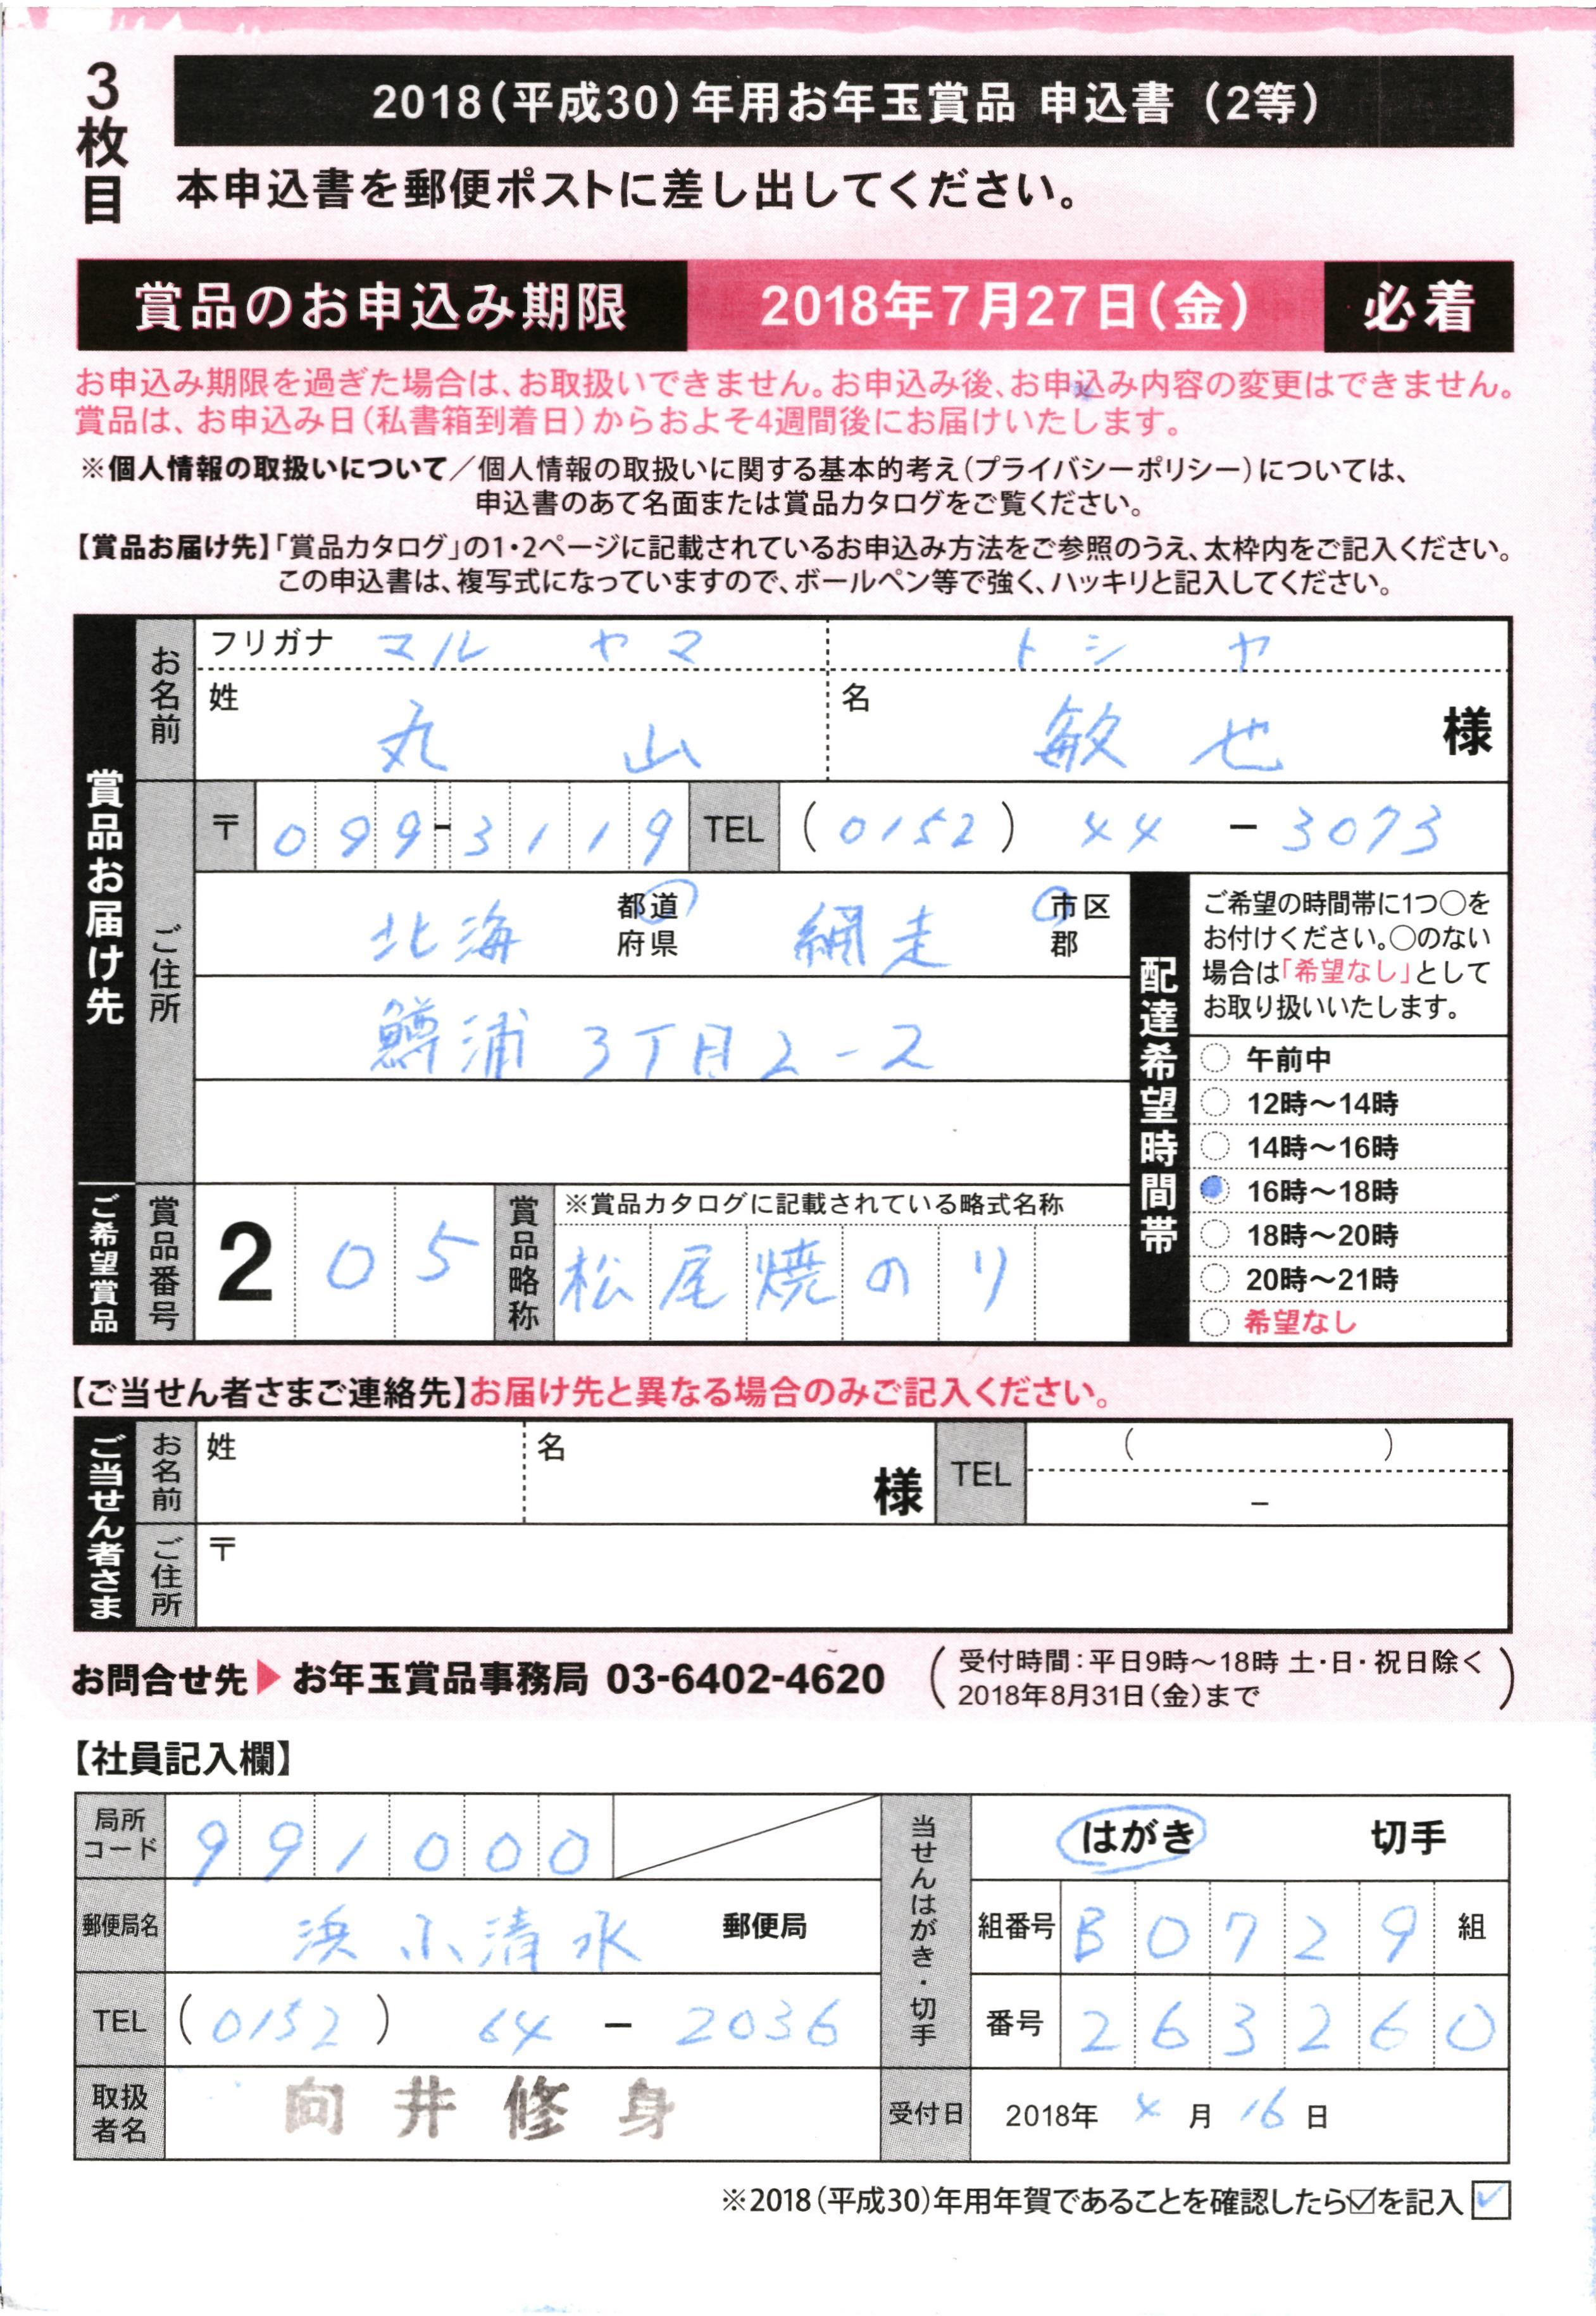 3枚目
2018(平成30)年用お年玉賞品 申込書 (2等)
本申込書を郵便ポストに差し出してください。
賞品のお申込み期限 2018年7月27日(金) 必着
お申込み期限を過ぎた場合は、お取扱いできません。お申込み後、お申込み内容の変更はできません。
賞品は、お申込み日(私書箱到着日)からおよそ4週間後にお届けいたします。
※個人情報の取扱いについて/個人情報の取扱いに関する基本的考え(プライバシーポリシー)については、
申込書のあて名面または賞品カタログをご覧ください。
【賞品お届け先】「賞品カタログ」の1・2ページに記載されているお申込み方法をご参照のうえ、太枠内をご記入ください。
この申込書は、複写式になっていますので、ボールペン等で強く、ハッキリと記入してください。
賞品お届け先
お名前
フリガナ マル ヤマ トシ ヤ
姓 丸 山 名 敏 也 様
ご住所
〒 099-3119 TEL (0152) 44 - 3073
北海 都道府県 網走 市区郡
鱒浦 3丁目2-2
配達希望時間帯
ご希望の時間帯に1つ○を
お付けください。○のない
場合は「希望なし」として
お取り扱いいたします。
午前中
12時〜14時
14時〜16時
16時〜18時
18時〜20時
20時〜21時
希望なし
ご希望賞品
賞品番号 2 0 5
賞品略称 ※賞品カタログに記載されている略式名称
松尾焼のり
【ご当せん者さまご連絡先】お届け先と異なる場合のみご記入ください。
ご当せん者さま
お名前 姓 名 様 TEL ( ) -
ご住所 〒
お問合せ先▶お年玉賞品事務局 03-6402-4620
(受付時間:平日9時〜18時 土・日・祝日除く
2018年8月31日(金)まで)
【社員記入欄】
局所コード 991000
郵便局名 浜小清水 郵便局
TEL (0152) 64 - 2036
取扱者名 向井修身
当せんはがき・切手
はがき 切手
組番号 B0729 組
番号 263260
受付日 2018年 4 月 16 日
※2018(平成30)年用年賀であることを確認したら☑を記入 ✓